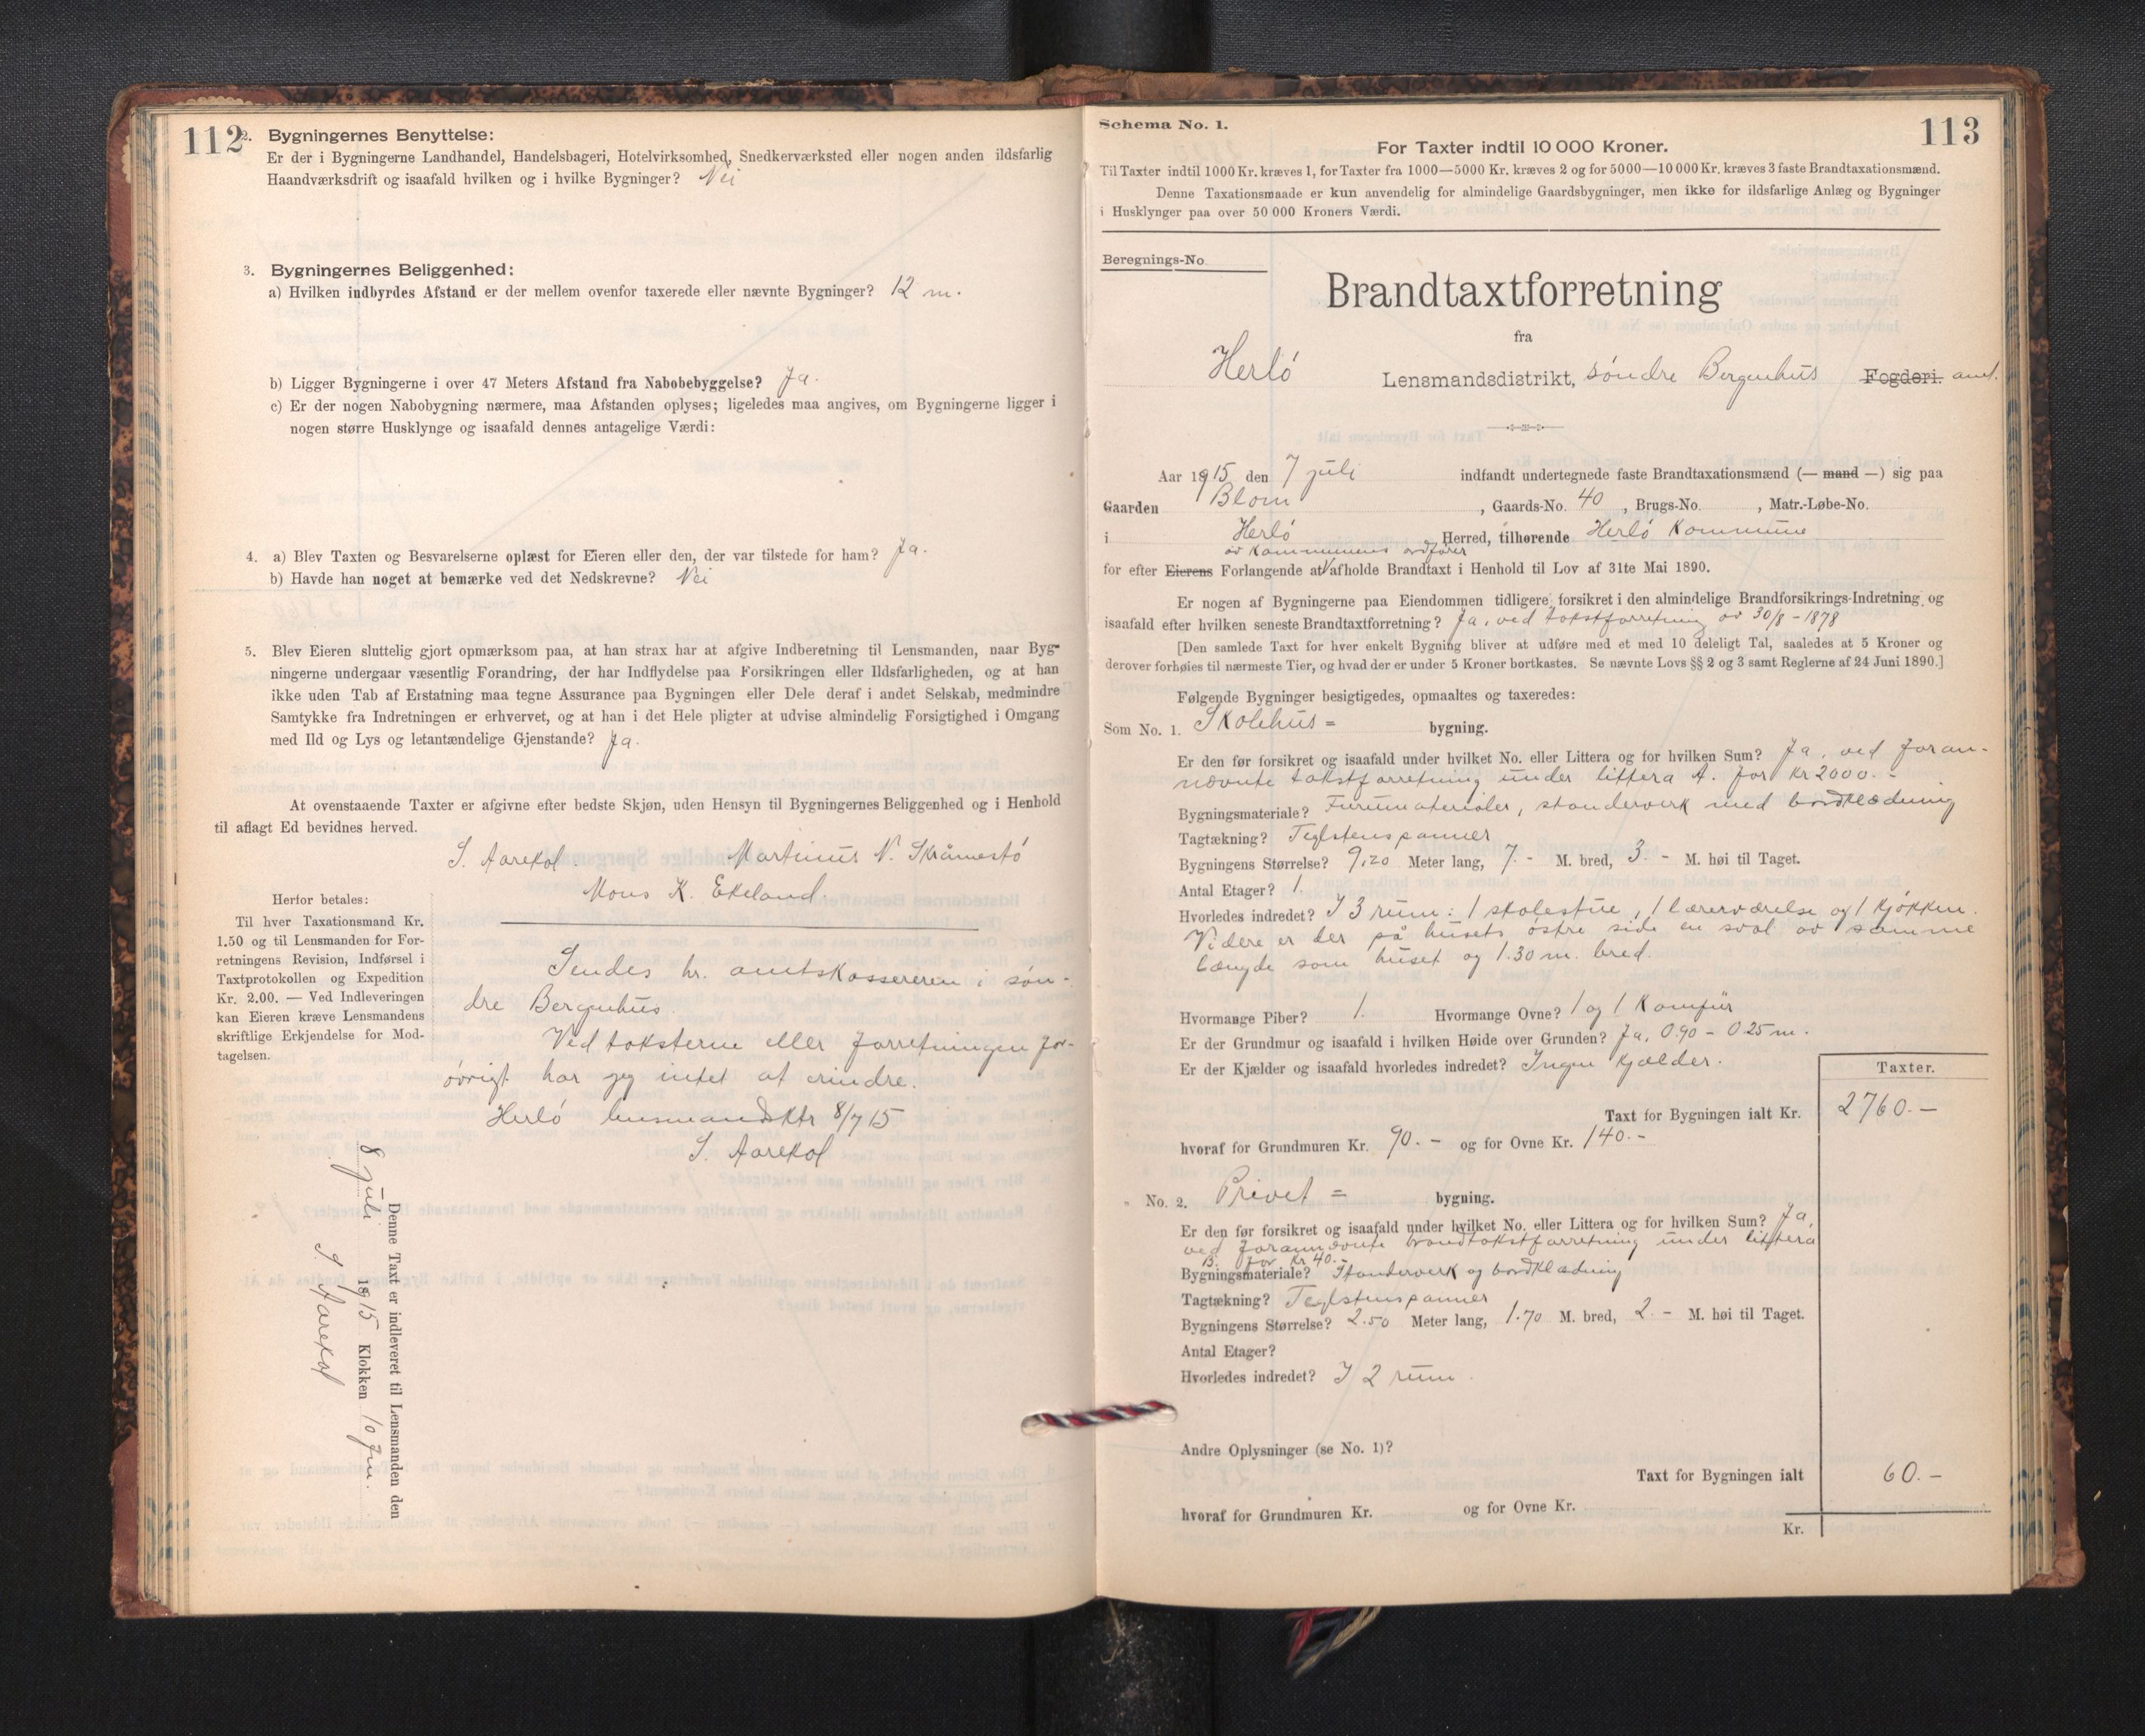 112
2. Bygningernes Benyttelse:
Er der i Bygningerne Landhandel, Handelsbageri, Hotelvirksomhed, Snedkerværksted eller nogen anden ildsfarlig
Haandværksdrift og isaafald hvilken og i hvilke Bygninger? Nei
3. Bygningernes Beliggenhed:
a) Hvilken indbyrdes Afstand er der mellem ovenfor taxerede eller nævnte Bygninger? 12 m.
b) Ligger Bygningerne i over 47 Meters Afstand fra Nabobebyggelse? Ja.
c) Er der nogen Nabobygning nærmere, maa Afstanden oplyses; ligeledes maa angives, om Bygningerne ligger i
nogen større Husklynge og isaafald dennes antagelige Værdi:
4. a) Blev Taxten og Besvarelserne oplæst for Eieren eller den, der var tilstede for ham? Ja.
b) Havde han noget at bemærke ved det Nedskrevne? Nei
5. Blev Eieren sluttelig gjort opmærksom paa, at han strax har at afgive Indberetning til Lensmanden, naar Byg-
ningerne undergaar væsentlig Forandring, der har Indflydelse paa Forsikringen eller Ildsfarligheden, og at han
ikke uden Tab af Erstatning maa tegne Assurance paa Bygningen eller Dele deraf i andet Selskab, medmindre
Samtykke fra Indretningen er erhvervet, og at han i det Hele pligter at udvise almindelig Forsigtighed i Omgang
med Ild og Lys og letantændelige Gjenstande? Ja.
At ovenstaaende Taxter er afgivne efter bedste Skjøn, uden Hensyn til Bygningernes Beliggenhed og i Henhold
til aflagt Ed bevidnes herved.
S. Aarekol. Martinus N. Skråmestö
Mons K. Ekeland.
Herfor betales:
Til hver Taxationsmand Kr.
1.50 og til Lensmanden for For-
retningens Revision, Indførsel i
Taxtprotokollen og Expedition
Kr. 2.00. — Ved Indleveringen
kan Eieren kræve Lensmandens
skriftlige Erkjendelse for Mod-
tagelsen.
Sendes hr. amtskassereren i søn-
dre Bergenhus.
Ved taksterne eller forretningen for-
övrigt har jeg intet at erindre.
Herlö lensmandsktr 8/7 15
S. Aarekol
Denne Taxt er indleveret til Lensmanden den
8 juli 1915 Klokken 10 fm.
S. Aarekol
113
Schema No. 1.
For Taxter indtil 10 000 Kroner.
Til Taxter indtil 1000 Kr. kræves 1, for Taxter fra 1000—5000 Kr. kræves 2 og for 5000—10 000 Kr. kræves 3 faste Brandtaxationsmænd.
Denne Taxationsmaade er kun anvendelig for almindelige Gaardsbygninger, men ikke for ildsfarlige Anlæg og Bygninger
i Husklynger paa over 50 000 Kroners Værdi.
Beregnings-No
Brandtaxtforretning
fra
Herlö Lensmandsdistrikt, söndre Bergenhus Fogderi. amt.
Aar 1915 den 7 juli indfandt undertegnede faste Brandtaxationsmænd (— mand —) sig paa
Gaarden Blom, Gaards-No. 40, Brugs-No. , Matr.-Løbe-No.
i Herlö Herred, tilhørende Herlö Kommune
av kommunens ordförer
for efter Eierens Forlangende at afholde Brandtaxt i Henhold til Lov af 31te Mai 1890.
Er nogen af Bygningerne paa Eiendommen tidligere forsikret i den almindelige Brandforsikrings-Indretning og
isaafald efter hvilken seneste Brandtaxtforretning? Ja, ved takstforretning av 30/8 - 1878
[Den samlede Taxt for hver enkelt Bygning bliver at udføre med et med 10 deleligt Tal, saaledes at 5 Kroner og
derover forhøies til nærmeste Tier, og hvad der er under 5 Kroner bortkastes. Se nævnte Lovs §§ 2 og 3 samt Reglerne af 24 Juni 1890.]
Følgende Bygninger besigtigedes, opmaaltes og taxeredes:
Som No. 1. Skolehus= bygning.
Er den før forsikret og isaafald under hvilket No. eller Littera og for hvilken Sum? Ja, ved foran-
nævnte takstforretning under littera A. for kr 2000.-
Bygningsmateriale? Furumaterialer, standerverk med bordklædning
Tagtækning? Teglstenspanner
Bygningens Størrelse? 9,20 Meter lang, 7.- M. bred, 3.- M. høi til Taget.
Antal Etager? 1.
Hvorledes indredet? I 3 rum: 1 skolestue, 1 lærerværelse og 1 kjøkken.
Videre er der på husets østre side en sval av samme
længde som huset og 1.30 m. bred.
Hvormange Piber? 1. Hvormange Ovne? 1 og 1 Komfur
Er der Grundmur og isaafald i hvilken Høide over Grunden? Ja, 0.90 - 0.25 m.
Er der Kjælder og isaafald hvorledes indredet? Ingen kjælder.
Taxter.
Taxt for Bygningen ialt Kr. 2760.-
hvoraf for Grundmuren Kr. 90.- og for Ovne Kr. 140.-
No. 2. Privet= bygning.
Er den før forsikret og isaafald under hvilket No. eller Littera og for hvilken Sum? Ja,
ved forannævnte brandtakstforretning under littera
B. for kr 40.-
Bygningsmateriale? Standerverk og bordklædning
Tagtækning? Teglstenspanner
Bygningens Størrelse? 2.50 Meter lang, 1.70 M. bred, 2.- M. høi til Taget.
Antal Etager?
Hvorledes indredet? I 2 rum.
Andre Oplysninger (se No. 1)?
Taxt for Bygningen ialt 60.-
hvoraf for Grundmuren Kr. og for Ovne Kr.
Kr.